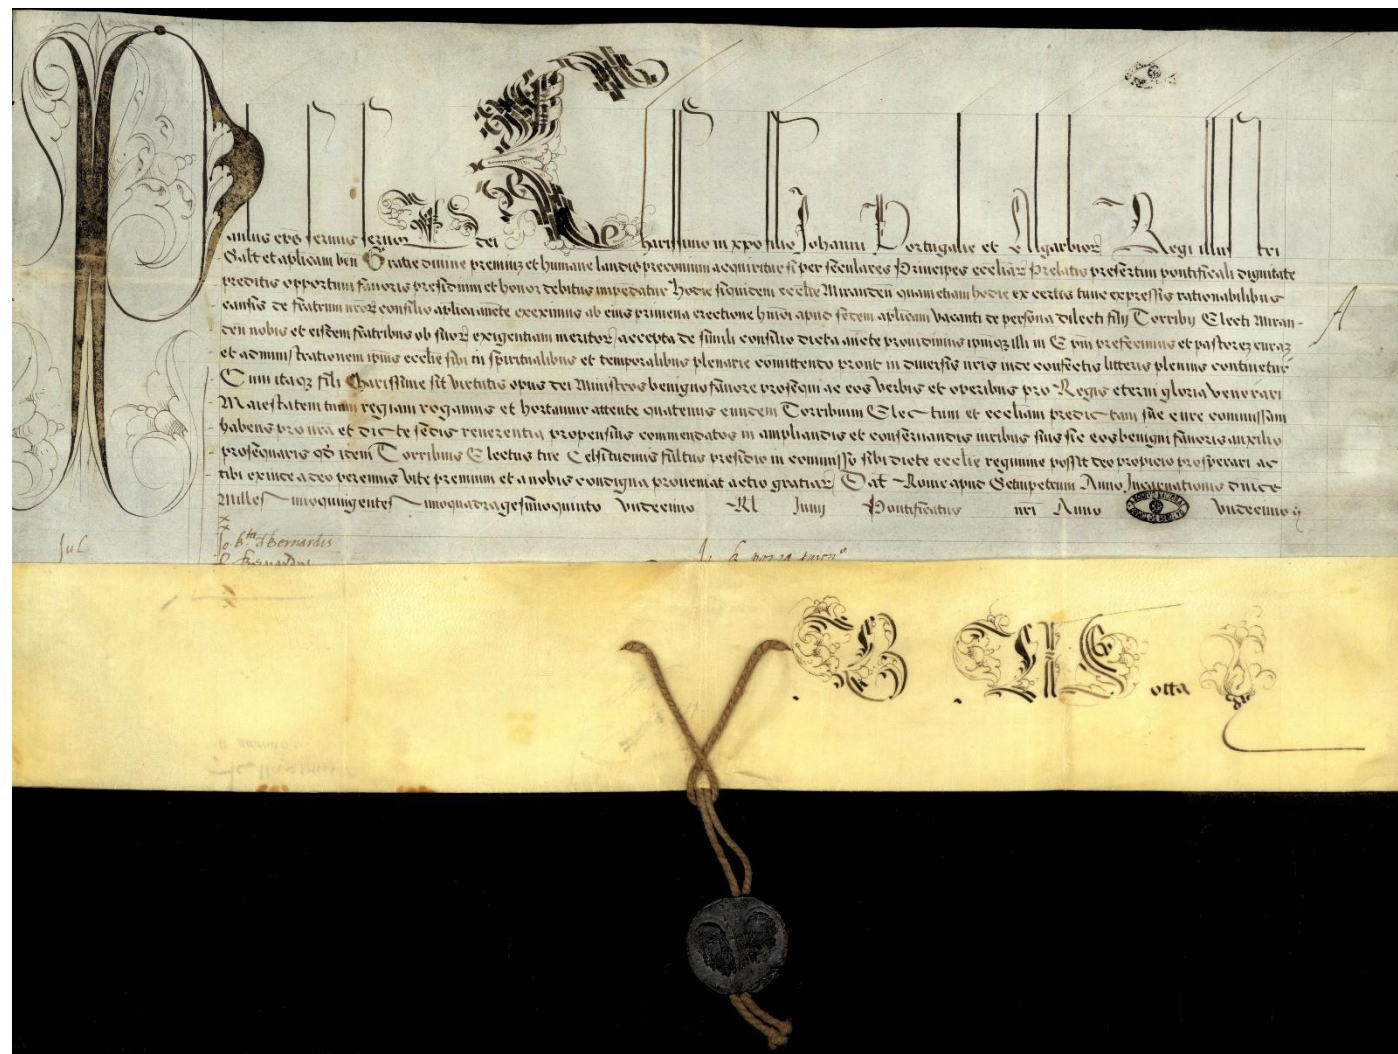 Paulus eps servus servoꝝ dei Charissimo in xpo filio Johanni Portugalie et Algarbioꝝ Regi Illustri
Salt et aplicam ben Gratie divine premiuꝫ et humane laudis preconium acquiritur si per seculares Principes eccliaꝝ Prelatis presertim pontificali dignitate
preditis opportuni favoris presidium et honor debitus impendatur Hodie siquidem ecclie Miranden quam etiam hodie ex certis tunc expressis rationabilibus
causis de fratrum nroꝝ consilio aplica aucte ereximus ab eius primeva erectione hmoi apud sedem aplicam vacanti de persona dilecti filij Torribij Electi Miran-
den nobis et eisdem fratribus ob suoꝝ exigentiam meritoꝝ accepta de simili consilio dicta aucte providimus ipmqꝫ illi in Epm prefecimus et pastoreꝫ curaꝫ
et administrationem ipius ecclie sibi in spiritualibus et temporalibus plenarie comittendo prout in diversis nris inde confectis litteris plenius continetur
Cum itaqꝫ fili Charissime sit virtutis opus dei Ministros benigno favore prosequi ac eos verbis et operibus pro Regis eterni gloria venerari
Maiestatem tuam regiam rogamus et hortamur attente quatenus eundem Torribium Electum et eccliam predictam sue cure commissam
habens pro nra et dicte sedis reverentia propensius commendatos in ampliandis et conservandis iuribus suis sic eos benigni favoris auxilio
prosequaris qd idem Torribius Electus tue Celsitudinis fultus presidio in commisso sibi dicte ecclie regimine possit deo propicio prosperari ac
tibi exinde a deo perennis vite premium et a nobis condigna proveniat actio gratiaꝝ Dat Rome apud Sctumpetrum Anno Incarnationis dnice
Millesimoquingentesimoquadragesimoquinto Undecimo Kl Junij Pontificatus nri Anno Undecimo
Jul
Jo. bta d Bernardis